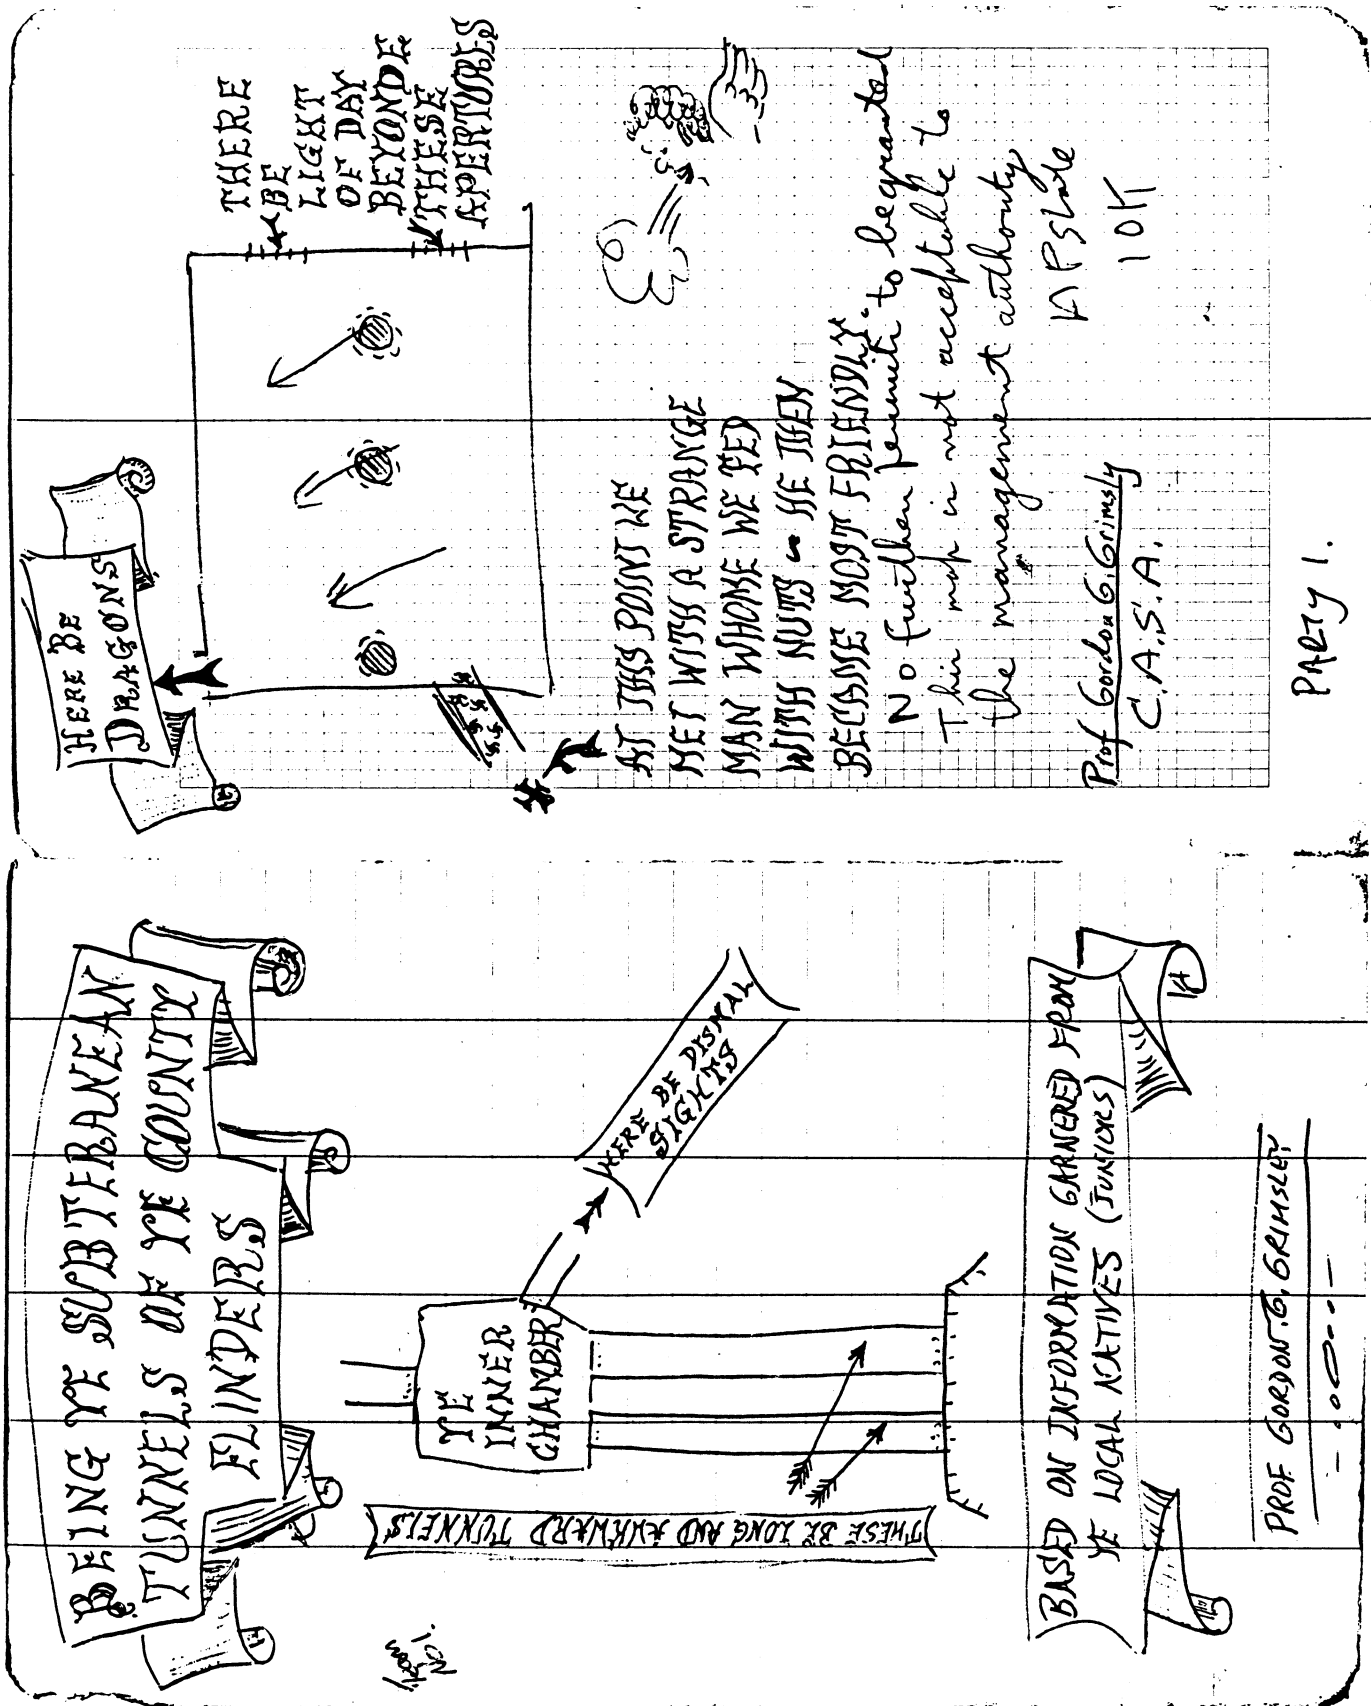 BEING YE SUBTERANEAN
TUNNELS OF YE COUNTY
FLINDERS
YE
INNER
CHAMBER
HERE BE DISMAL
SIGHTS
THESE BE LONG AND AWKWARD TUNNELS
BASED ON INFORMATION GARNERED FROM
YE LOCAL NATIVES (JUNIORS)
PROF GORDON.G.GRIMSLEY
NO 1.
HERE BE
DRAGONS
THERE
BE
LIGHT
OF DAY
BEYONDE
THESE
APERTURES
AT THIS POINT WE
MET WITH A STRANGE
MAN WHOME WE FED
WITH NUTS - HE THEN
BECAME MOST FRIENDLY.
No further permits to be granted
This map is not acceptable to
the management authority
Prof Gordon G. Grimsly
C.A.S.A.
PARTY 1.